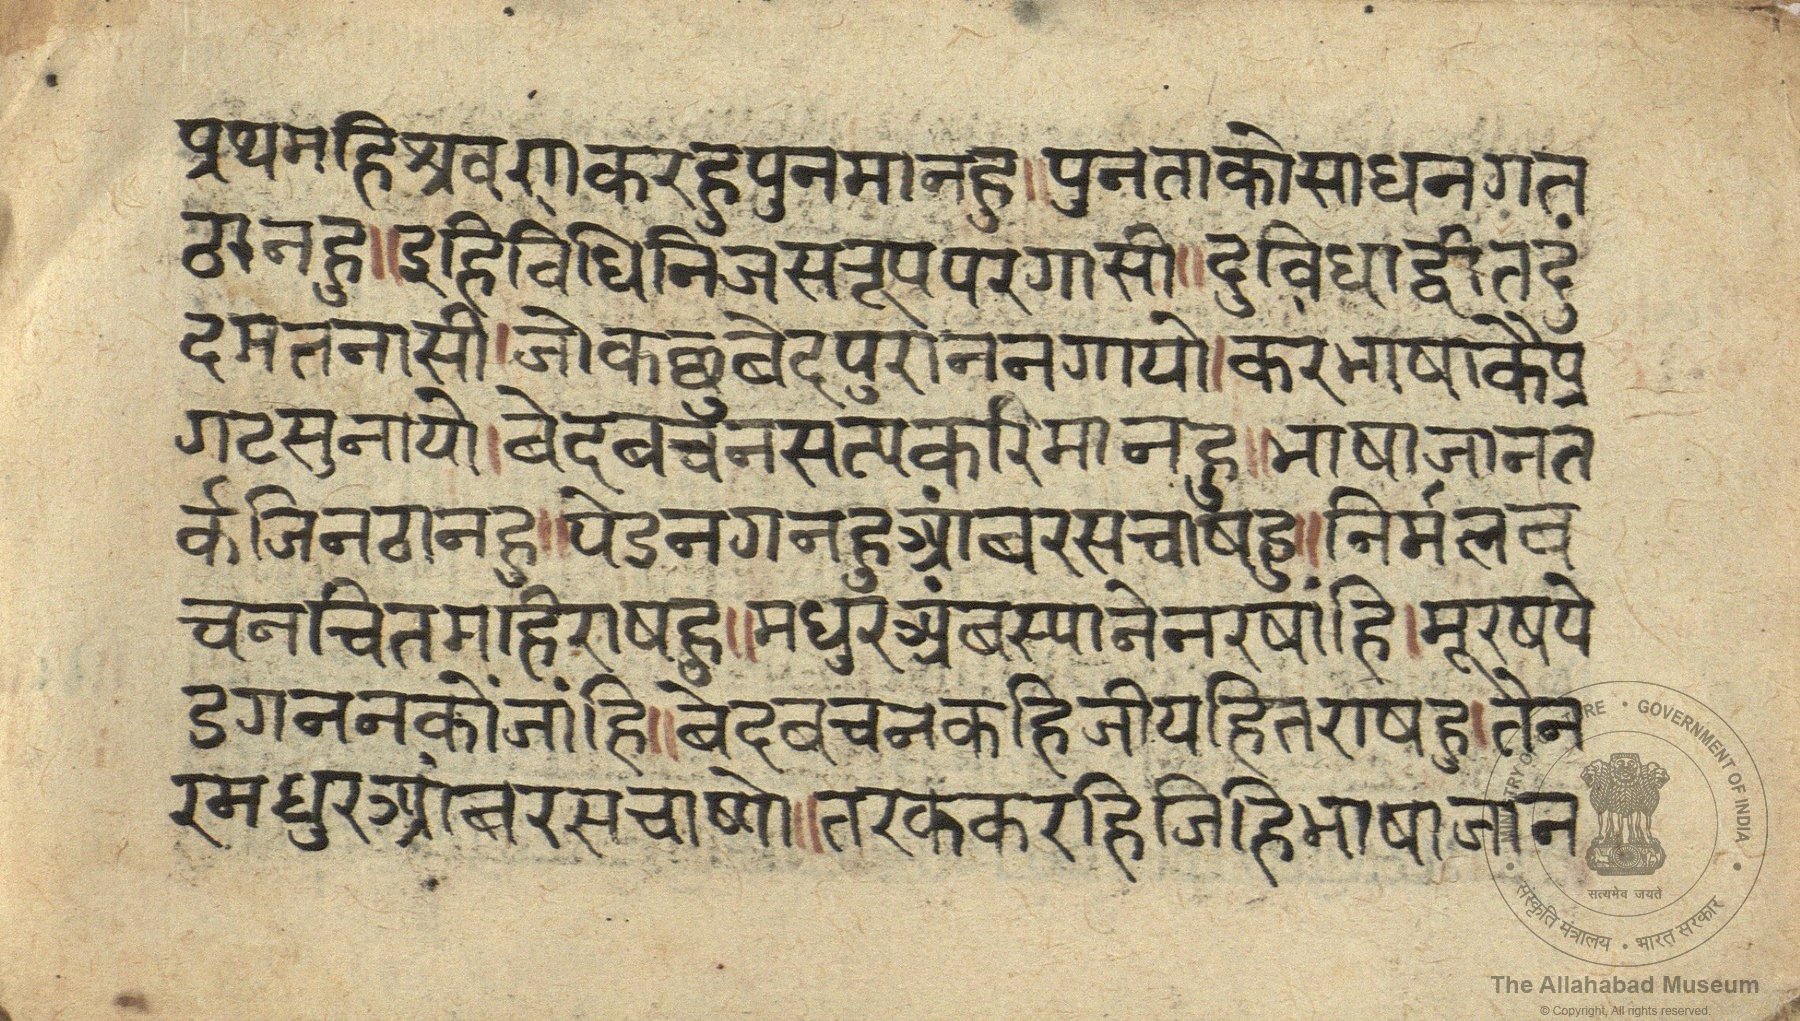 प्रथमहिश्रवणकरहुपुनमानहु॥पुनताकोसाधनगत
ठानहु॥इहिविधिनिजसरूपपरगासी॥दुविधाद्वीतदुं
दमतनासी।जोकछुबेदपुराननगायो।करभाषाकैप्र
गटसुनायो।बेदबचनसत्यकरिमानहु॥भाषाजानत
र्कजिनठानहु॥पेडनगनहुआंबरसचाषहु॥निर्मलब
चनचितमाहिराषहु॥मधुरअंबस्यानेनरषांहि।मूरषपे
डगननकोंजांहि॥बेदबचनकहिजीयहितराषहु।तेन
रमधुरआंबरसचाष्यो॥तरककरहिजिहिभाषाजान
MINISTRY OF CULTURE • GOVERNMENT OF INDIA
सत्यमेव जयते
संस्कृति मंत्रालय • भारत सरकार
The Allahabad Museum
© Copyright, All rights reserved.